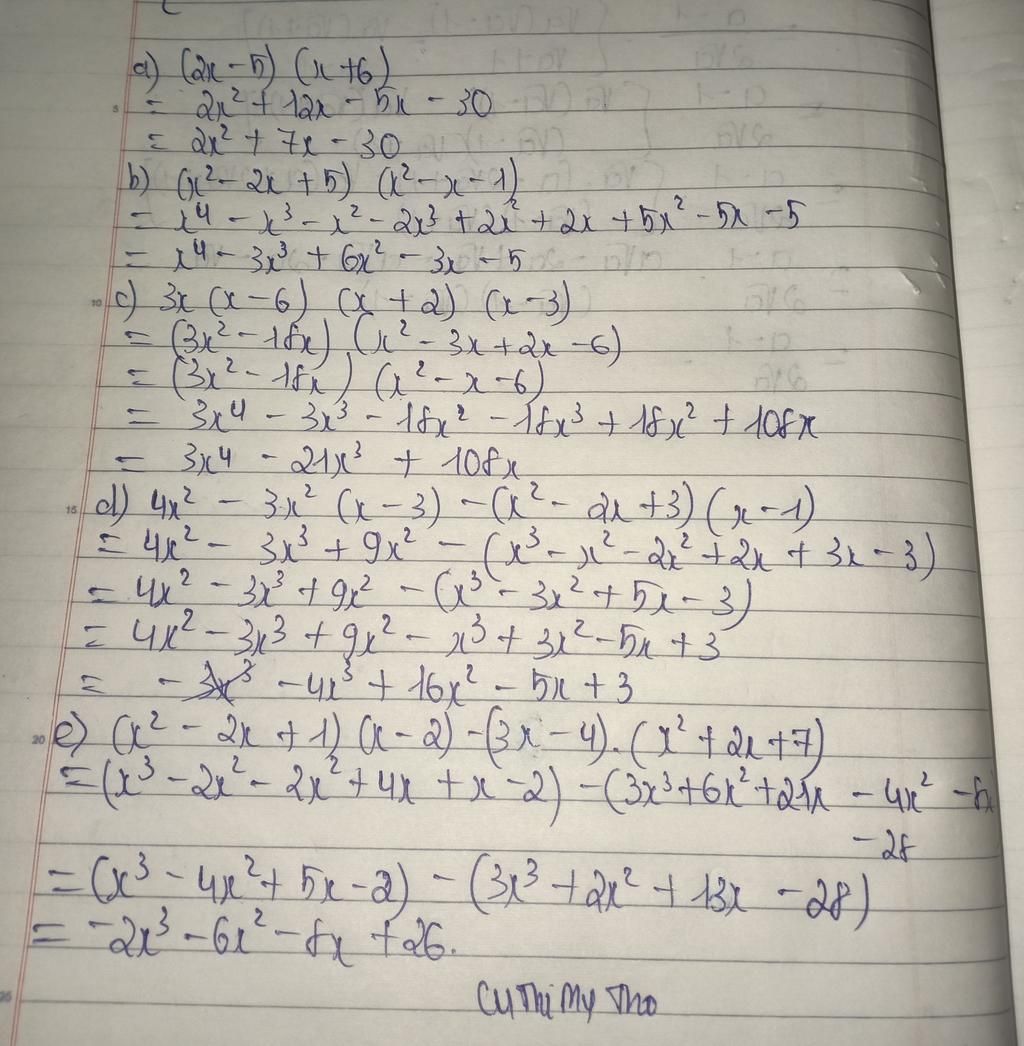 a) (2x - 5) (x + 6)
= 2x² + 12x - 5x - 30
= 2x² + 7x - 30
b) (x² - 2x + 5) (x² - x - 1)
= x⁴ - x³ - x² - 2x³ + 2x² + 2x + 5x² - 5x - 5
= x⁴ - 3x³ + 6x² - 3x - 5
c) 3x (x - 6) (x + 2) (x - 3)
= (3x² - 18x) (x² - 3x + 2x - 6)
= (3x² - 18x) (x² - x - 6)
= 3x⁴ - 3x³ - 18x² - 18x³ + 18x² + 108x
= 3x⁴ - 21x³ + 108x
d) 4x² - 3x² (x - 3) - (x² - 2x + 3) (x - 1)
= 4x² - 3x³ + 9x² - (x³ - x² - 2x² + 2x + 3x - 3)
= 4x² - 3x³ + 9x² - (x³ - 3x² + 5x - 3)
= 4x² - 3x³ + 9x² - x³ + 3x² - 5x + 3
= - 4x³ + 16x² - 5x + 3
e) (x² - 2x + 1) (x - 2) - (3x - 4) . (x² + 2x + 7)
= (x³ - 2x² - 2x² + 4x + x - 2) - (3x³ + 6x² + 21x - 4x² - 8x
- 28
= (x³ - 4x² + 5x - 2) - (3x³ + 2x² + 13x - 28)
= -2x³ - 6x² - 8x + 26.
Cu Thi My Tho